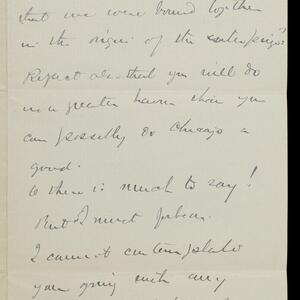 that we were bound together
in the origin of the enterprise?
Reject all that you will do
us a greater harm than you
can possibly do Chicago a
good.
O there is much to say!
But I must forbear.
I cannot contemplate
your going with any